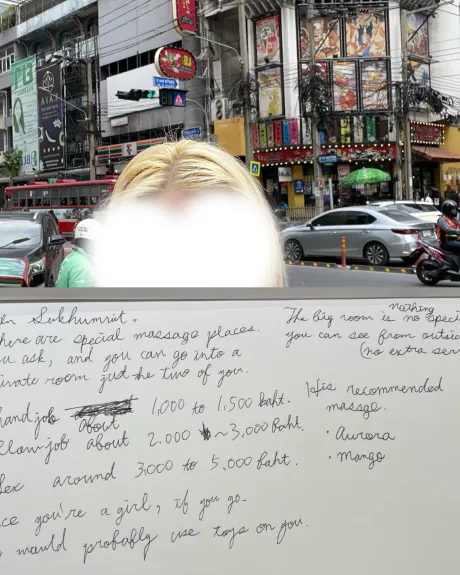 en Sukhumvit.
here are special massage places.
u ask, and you can go into a
ivate room just the two of you.
andjob about 1,000 to 1,500 baht.
lowjob about 2.000 ~ 3,000 baht.
ex around 3,000 to 5,000 baht.
ce you're a girl, if you go.
would probafly use toys on you.
nothing
The big room is no speci
you can see from outsid
(no extra ser
His recommended
massge.
・Aurora
・Mango